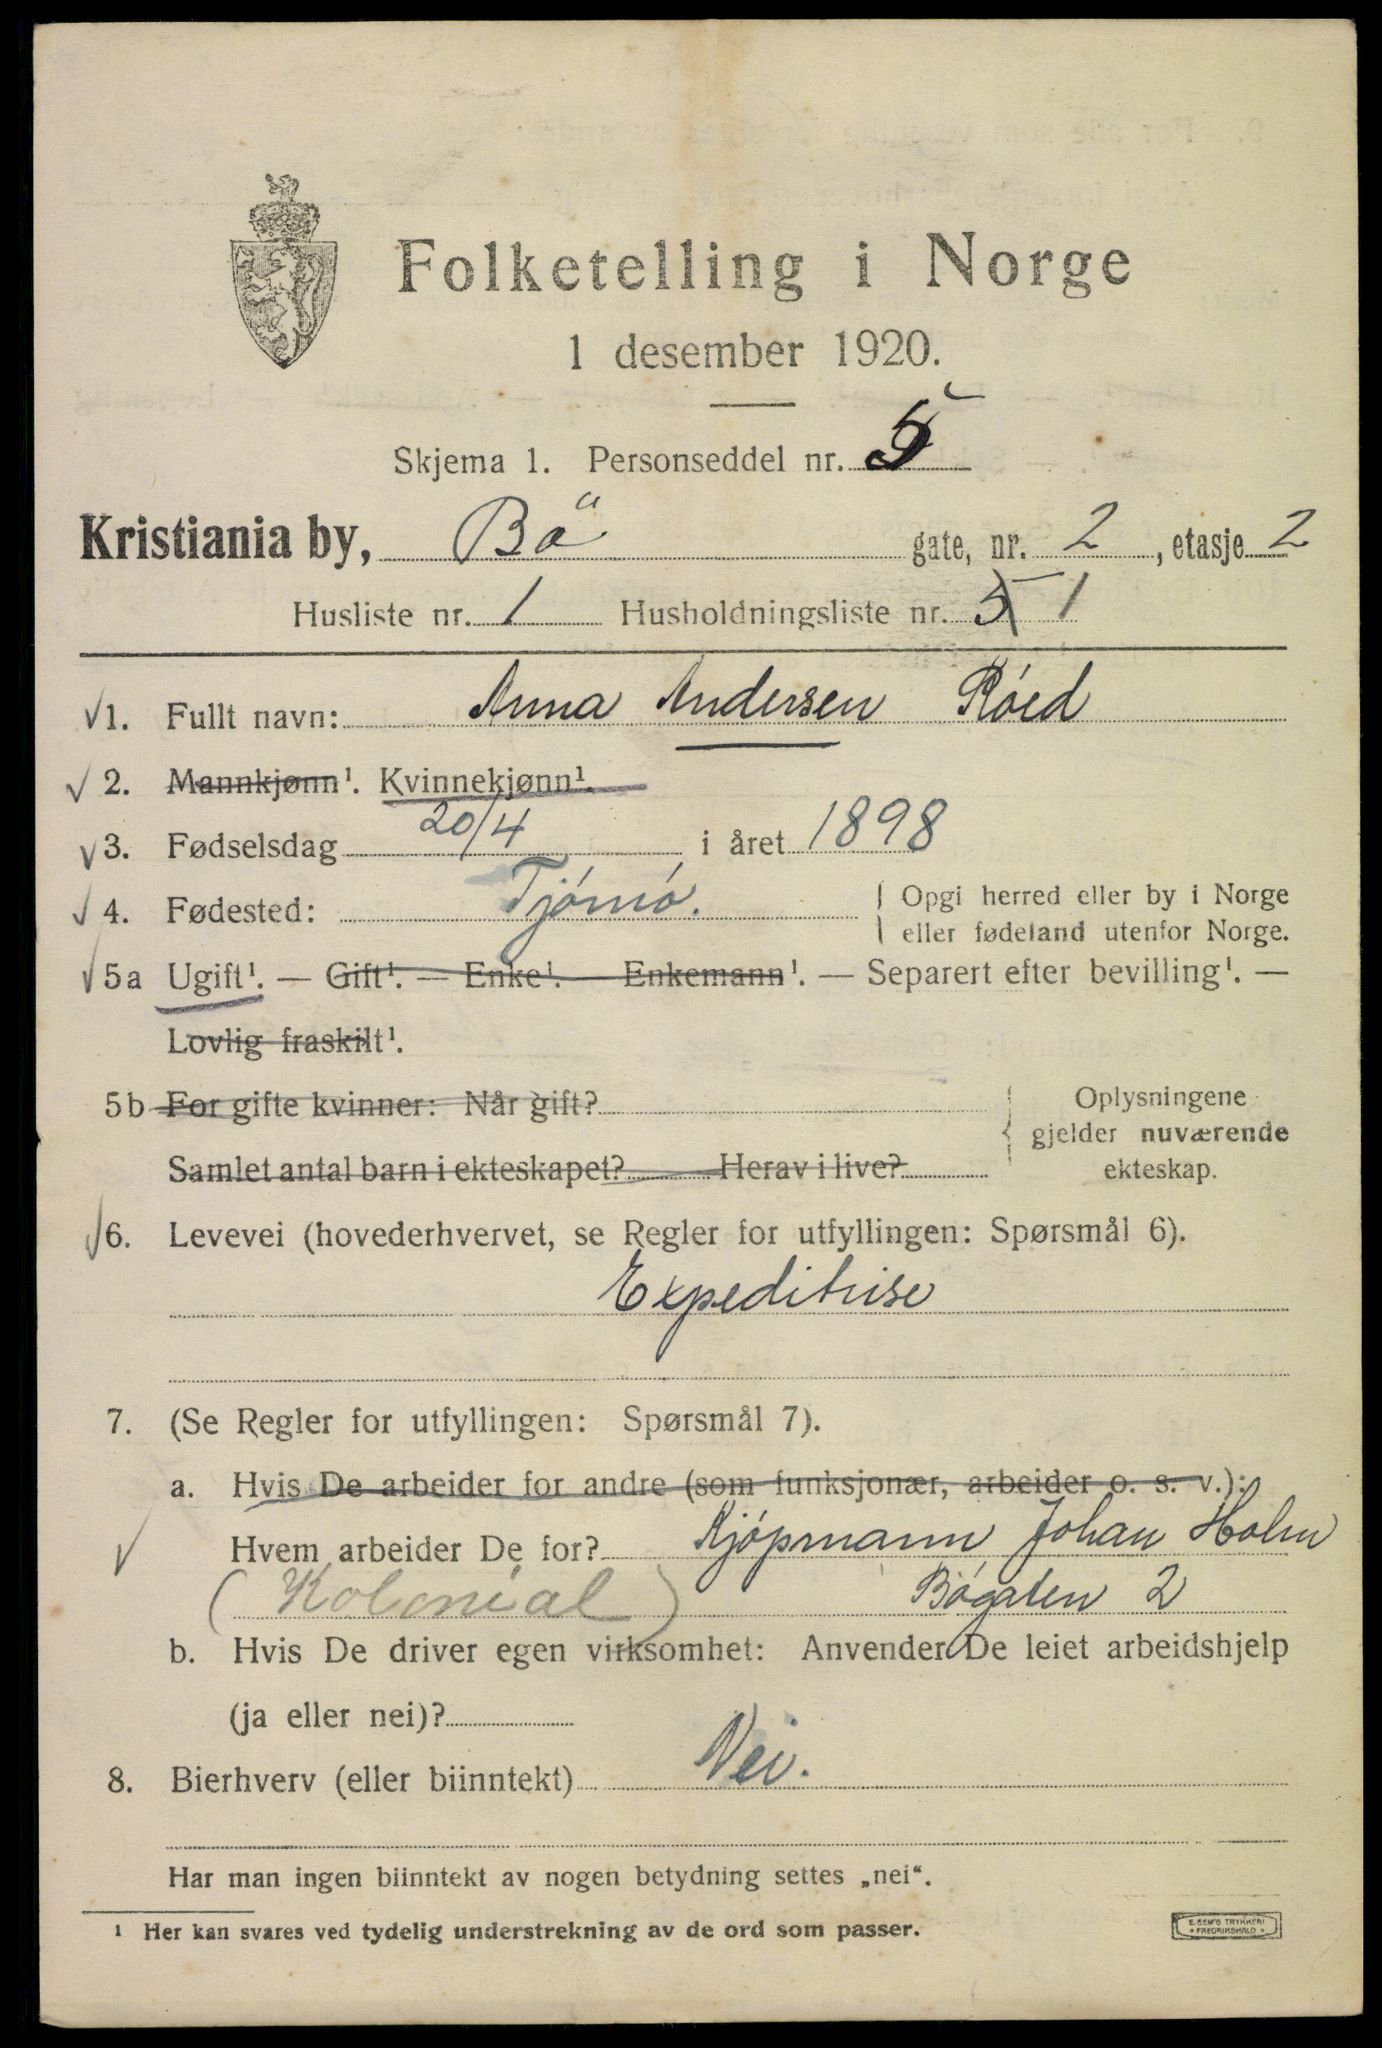 Folketelling i Norge
1 desember 1920.
Skjema 1. Personseddel nr. 5
Kristiania by, Bö gate, nr. 2, etasje 2
Husliste nr. 1 Husholdningsliste nr. 5 1
1. Fullt navn: Anna Andersen Róed
2. Mannkjønn¹. Kvinnekjønn¹.
3. Fødselsdag 20/4 i året 1898
4. Fødested: Tjómó. Opgi herred eller by i Norge
eller fødeland utenfor Norge.
5a Ugift¹. — Gift¹. — Enke¹. — Enkemann¹. — Separert efter bevilling¹. —
Lovlig fraskilt¹.
5b For gifte kvinner: Når gift? Oplysningene
gjelder nuværende
Samlet antal barn i ekteskapet? Herav i live? ekteskap.
6. Levevei (hovederhvervet, se Regler for utfyllingen: Spørsmål 6).
Expeditrise
7. (Se Regler for utfyllingen: Spørsmål 7).
a. Hvis De arbeider for andre (som funksjonær, arbeider o. s. v.):
Hvem arbeider De for? Kjópmann Johan Holm
(Kolonial) Bógaten 2
b. Hvis De driver egen virksomhet: Anvender De leiet arbeidshjelp
(ja eller nei)?
8. Bierhverv (eller biinntekt) Nei.
Har man ingen biinntekt av nogen betydning settes „nei“.
¹ Her kan svares ved tydelig understrekning av de ord som passer.
E. SEM'S TRYKKERI
• FREDRIKSHALD •